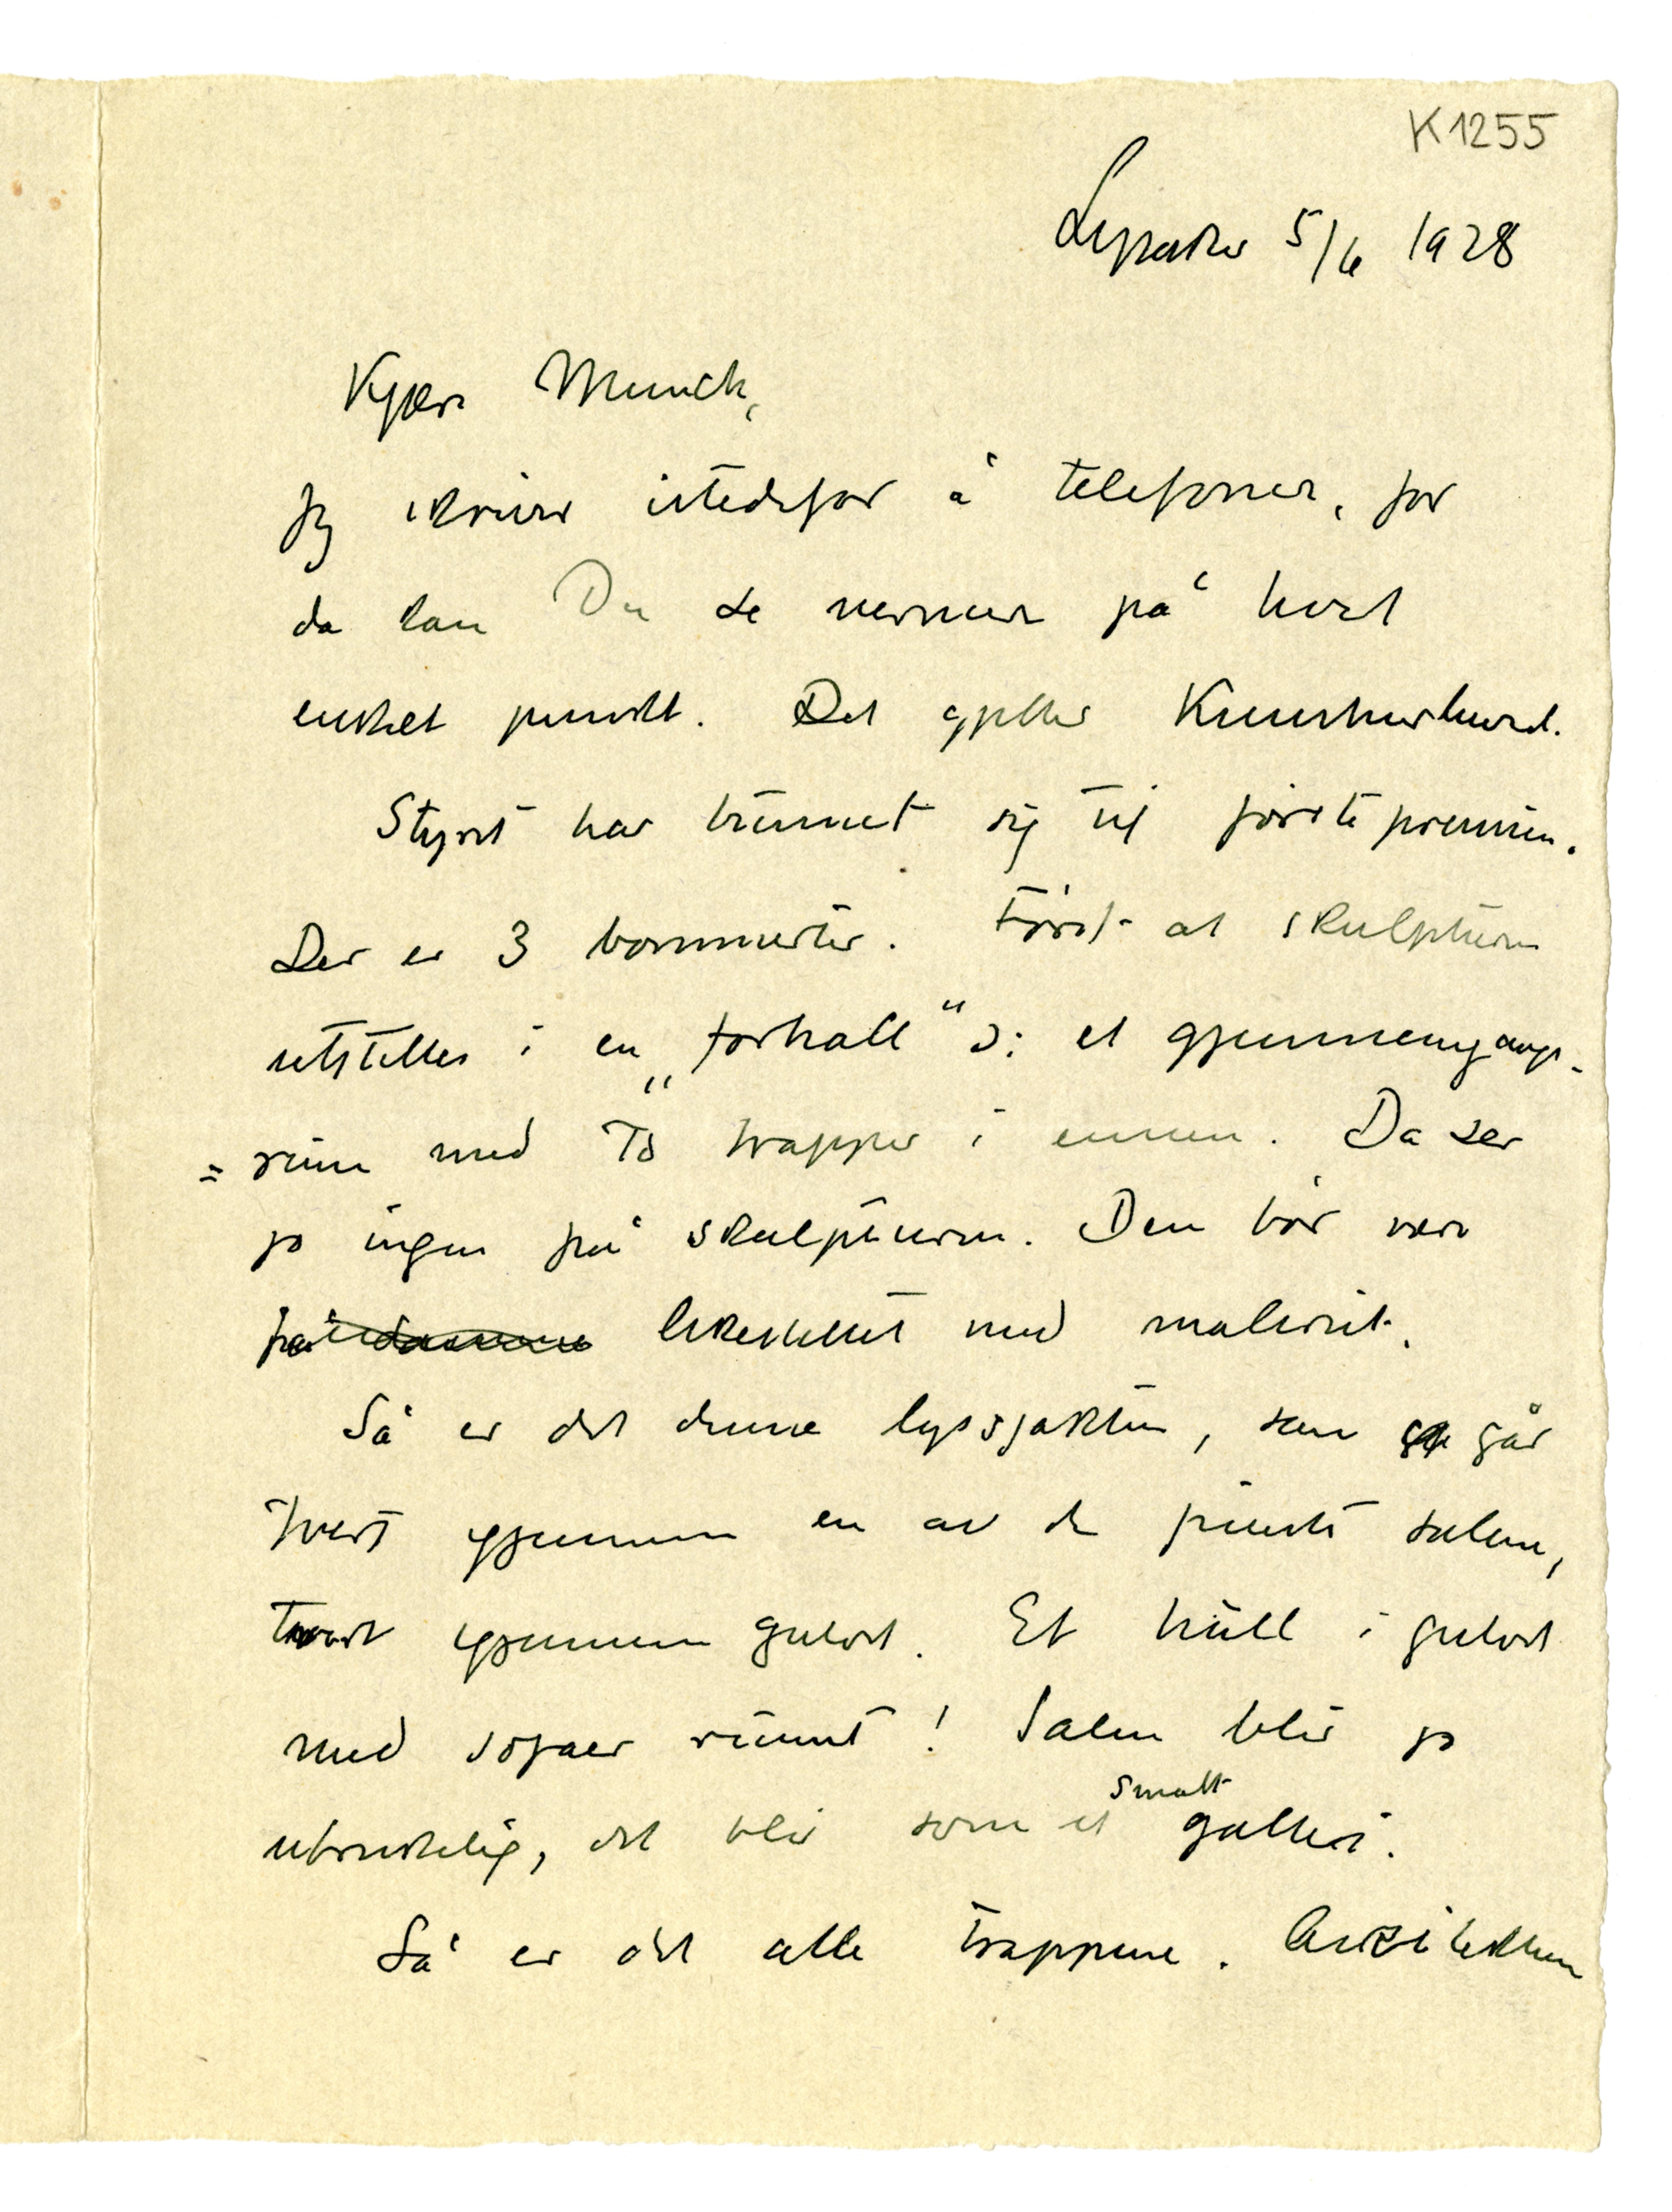 K1255
Lysaker 5/6 1928
Kjære Munch,
Jeg skriver istedefor å telefonere, for
da kan Du se nermere på hvert
enkelt punkt. Det gjeller Kunstnerhuset.
Styret har bunnet sig til første premien.
Der er 3 bommerter. Først at skulpturen
utstilles i en „forhall“ ɔ: et gjennemgangs-
=rum med to trapper i ennen. Da ser
jo ingen på skulpturen. Den bør være
på likestillet med maleriet.
Så er det denne lyssjakten, som går
tvert gjennem en av de fineste salene,
tvert gjennem gulvet. Et hull i gulvet
med sofaer rundt! Salen blir jo
smalt
ubrukelig, det blir som et galleri.
Så er det alle trappene. Arkitekten